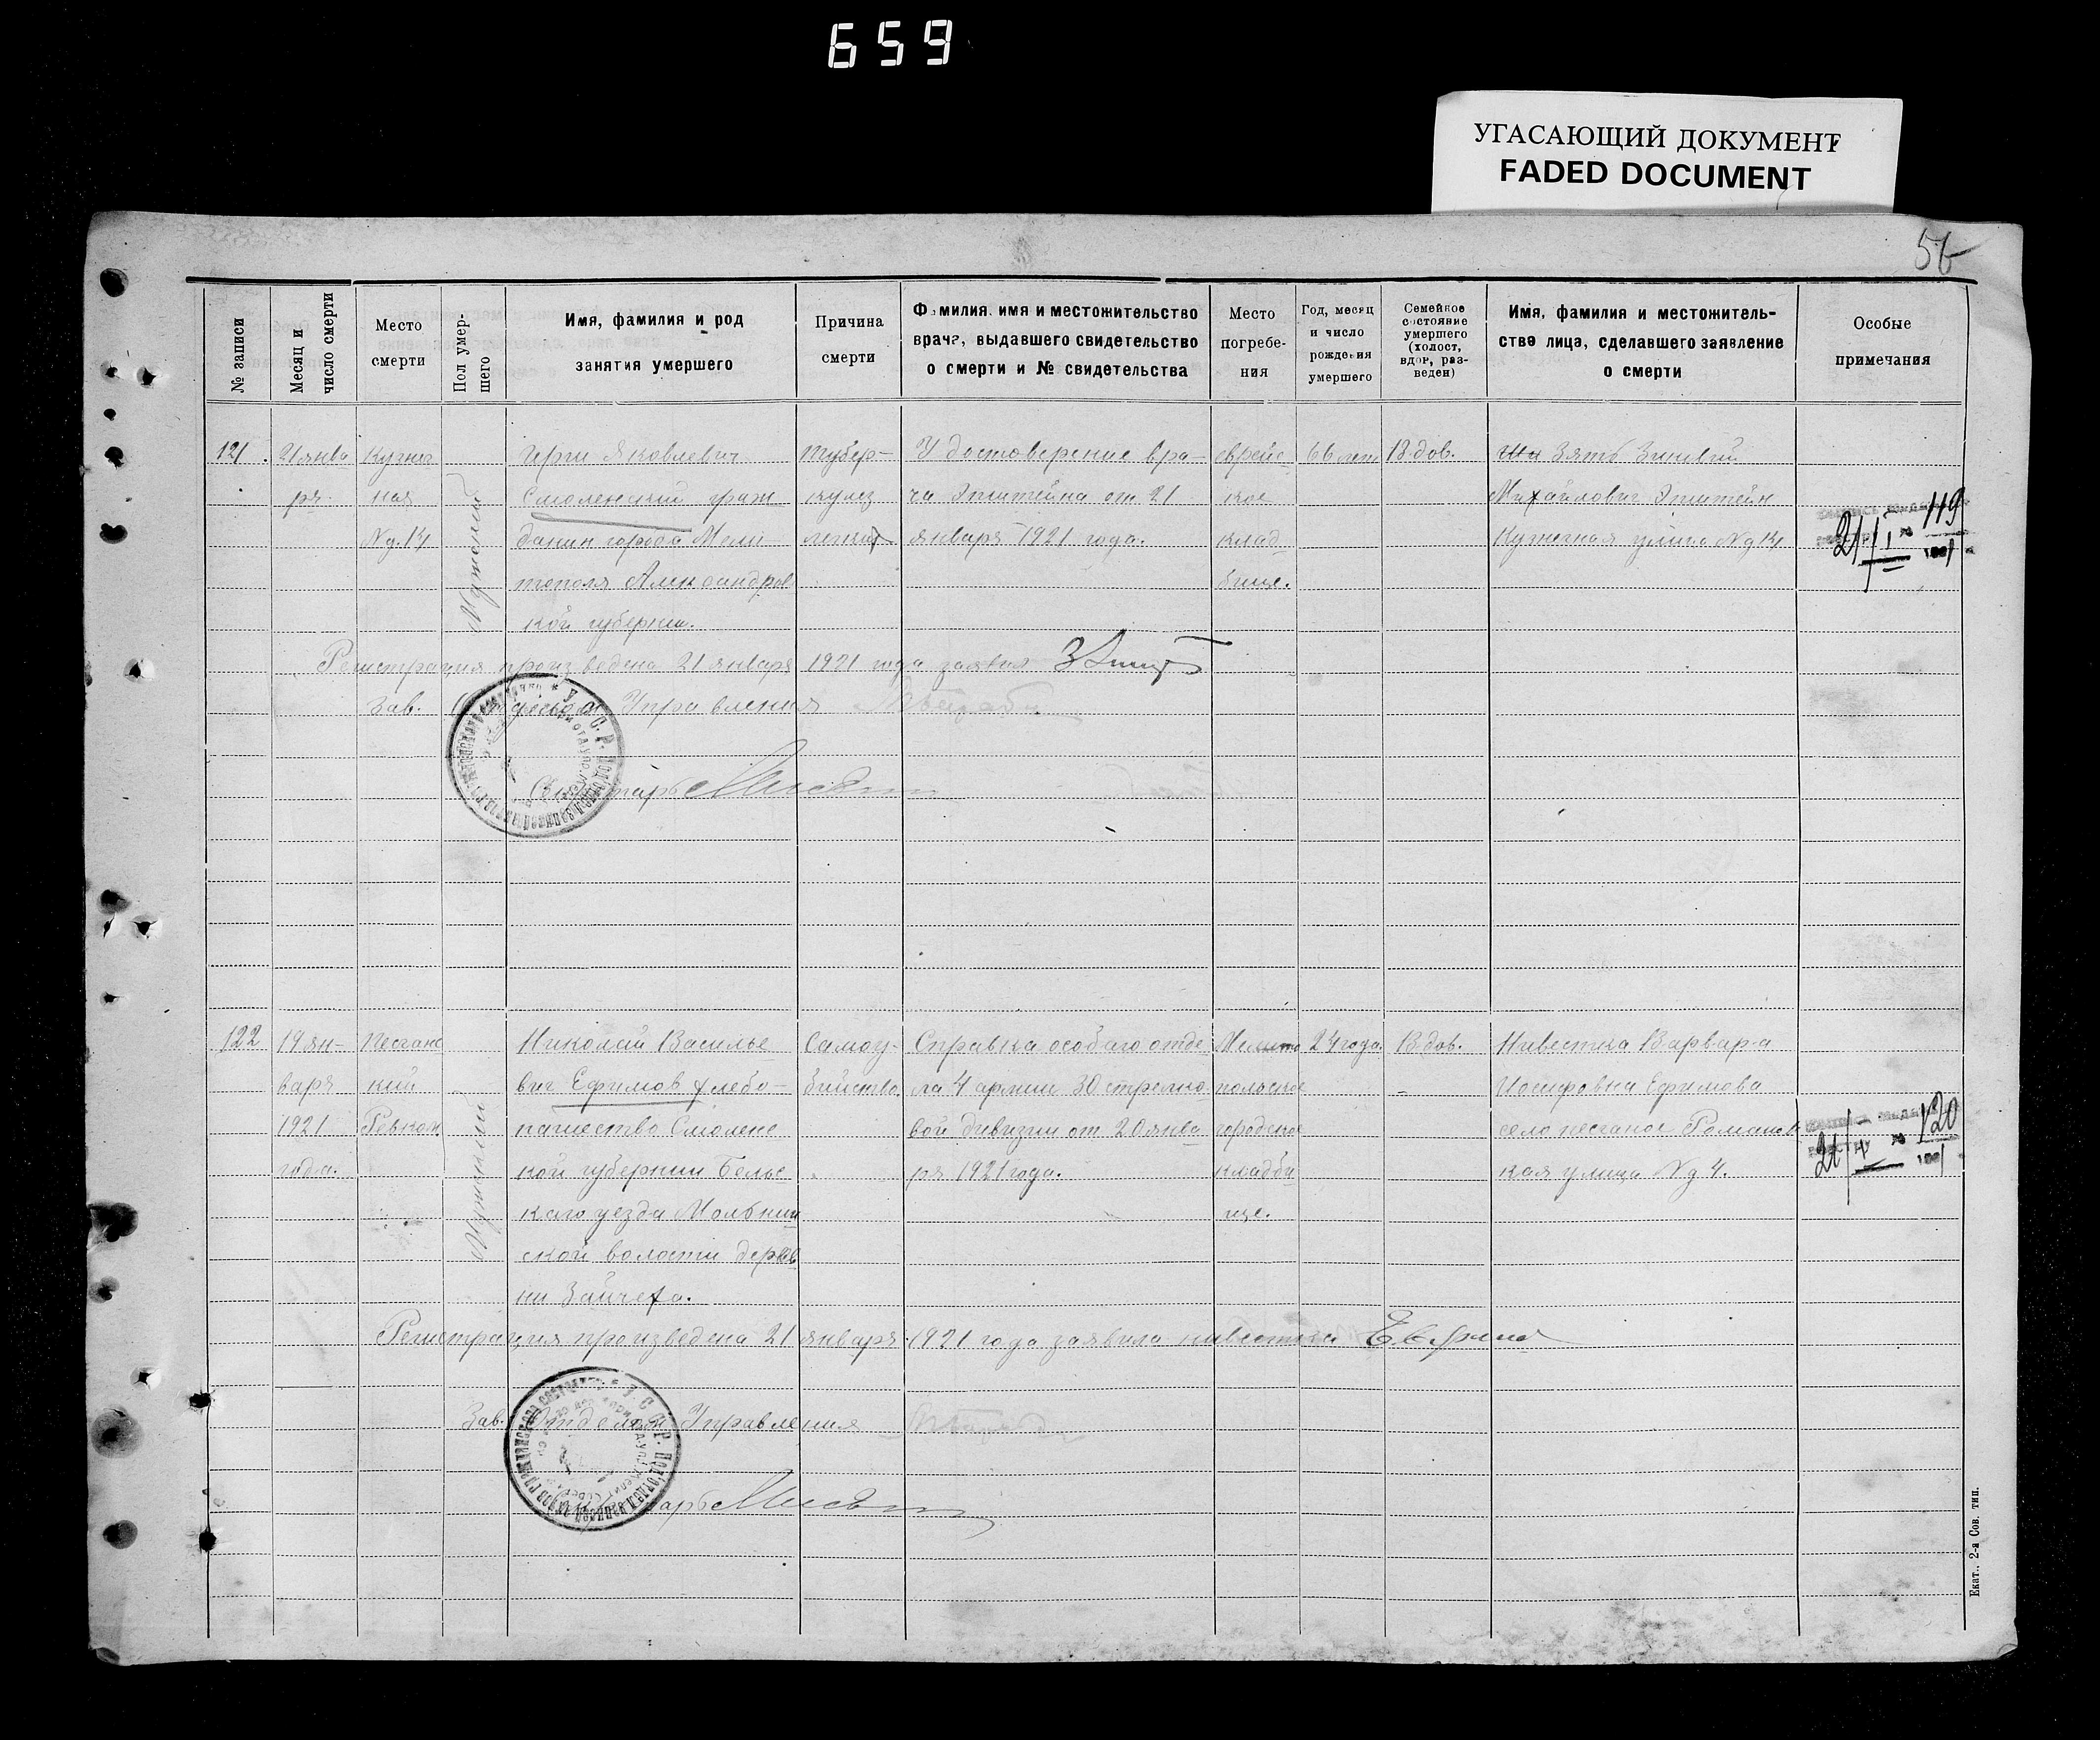 659
УГАСАЮЩИЙ ДОКУМЕНТ
FADED DOCUMENT
56
№ записи
Месяц и число смерти
Место смерти
Пол умершего
Имя, фамилия и род
занятия умершего
Причина
смерти
Фамилия, имя и местожительство
врача, выдавшего свидетельство
о смерти и № свидетельства
Место
погребе-
ния
Год, месяц
и число
рождения
умершего
Семейное
состояние
умершего
(холост,
вдов, раз-
веден)
Имя, фамилия и местожитель-
ство лица, сделавшего заявление
о смерти
Особые
примечания
121
21 янва
ря
Кузнеч
ная
№ 14
Мужской
Герш Яковлевич
Смоленский граж
данин города Мели
тополя Александров
кой губернии.
Тубер-
кулез
легких
Удостоверение вра-
ча Эпштейна от 21
января 1921 года.
еврейс
кое
клад
бище.
66 лет
Вдов.
Зять Зиновий
Михайлович Эпштейн
Кузнечная улица № 14
21/I № 119
Регистрация произведена 21 января 1921 года заявил
Зав. Отделом Управления
Секретарь
122
19 ян-
варя
1921
года.
Песчанс
кий
Ревком
Мужской
Николай Василье
вич Ефимов хлебо-
пашество Смоленс
кой губернии Бельс
каго уезда Мольнин
ской волости дерев
ни Зайчеха.
Самоу-
бийство.
Справка особаго отде
ла 4 армии 30 стрелко
вой дивизии от 20 янва
ря 1921 года.
Мелито
польское
городское
кладби
ще.
24 года
Вдов.
Невестка Варвара
Иосифовна Ефимова
село песчаное Романовс
кая улица № 4.
21/ № 120
Регистрация произведена 21 января 1921 года заявила невестка
Зав. Отделом Управления
Екат., 2-я Сов. тип.